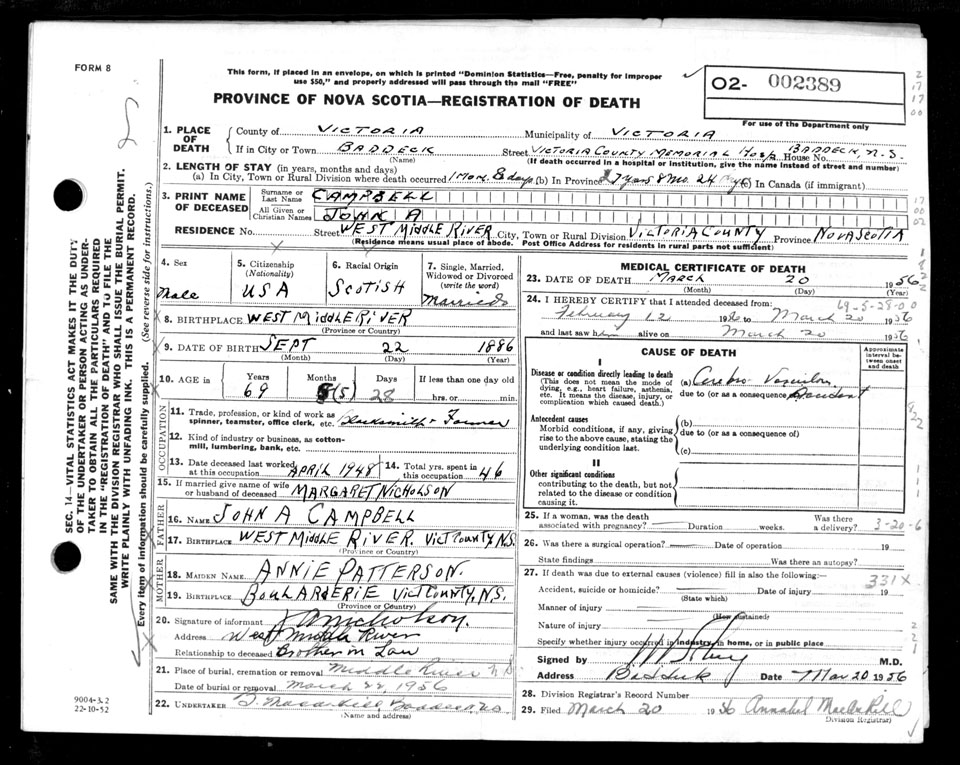 FORM 8
This form, if placed in an envelope, on which is printed "Dominion Statistics—Free, penalty for improper
use $50," and properly addressed will pass through the mail "FREE"
PROVINCE OF NOVA SCOTIA—REGISTRATION OF DEATH
O2- 002389
For use of the Department only
1. PLACE OF DEATH { County of VICTORIA Municipality of VICTORIA
If in City or Town BADDECK Street VICTORIA COUNTY MEMORIAL HOSP. House No. BADDECK, N.S.
(Name) (If death occurred in a hospital or institution, give the name instead of street and number)
2. LENGTH OF STAY (in years, months and days)
(a) In City, Town or Rural Division where death occurred 1 Mon. 8 days (b) In Province years 8 mo. 24 days (c) In Canada (if immigrant)
3. PRINT NAME OF DECEASED { Surname or Last Name CAMPBELL
All Given or Christian Names JOHN A
RESIDENCE No. Street WEST MIDDLE RIVER City, Town or Rural Division VICTORIA COUNTY Province NOVA SCOTIA
(Residence means usual place of abode. Post Office Address for residents in rural parts not sufficient)
4. Sex Male
5. Citizenship (Nationality) USA
6. Racial Origin SCOTISH
7. Single, Married, Widowed or Divorced (write the word) Married
8. BIRTHPLACE WEST MIDDLE RIVER
(Province or Country)
9. DATE OF BIRTH SEPT 22 1886
(Month) (Day) (Year)
10. AGE in Years 69 Months (5) Days 28 If less than one day old hrs. or min.
OCCUPATION
11. Trade, profession, or kind of work as spinner, teamster, office clerk, etc. Blacksmith + Farmer
12. Kind of industry or business, as cotton-mill, lumbering, bank, etc.
13. Date deceased last worked at this occupation APRIL 1948 14. Total yrs. spent in this occupation 46
15. If married give name of wife or husband of deceased MARGARET NICHOLSON
FATHER
16. NAME JOHN A CAMPBELL
17. BIRTHPLACE WEST MIDDLE RIVER. VICT COUNTY N.S.
(Province or Country)
MOTHER
18. MAIDEN NAME ANNIE PATTERSON.
19. BIRTHPLACE BOULARDERIE VICT COUNTY, N.S.
(Province or Country)
20. Signature of informant J A Nicholson.
Address West Middle River
Relationship to deceased Brother in Law
21. Place of burial, cremation or removal Middle River N S
Date of burial or removal March 22, 1956
22. UNDERTAKER Baddeck N.S.
(Name and address)
MEDICAL CERTIFICATE OF DEATH
23. DATE OF DEATH March 20 1956
(Month) (Day) (Year)
24. I HEREBY CERTIFY that I attended deceased from: 69-5-28-00
February 12 1956 to March 20 1956
and last saw him alive on March 20 1956
CAUSE OF DEATH
Approximate interval between onset and death
I
Disease or condition directly leading to death
(This does not mean the mode of dying, e.g., heart failure, asthenia, etc. It means the disease, injury, or complication which caused death.)
(a) Cerebro Vascular
due to (or as a consequence of) accident
Antecedent causes
Morbid conditions, if any, giving rise to the above cause, stating the underlying condition last.
(b)
due to (or as a consequence of)
(c)
II
Other significant conditions
contributing to the death, but not related to the disease or condition causing it.
25. If a woman, was the death associated with pregnancy? Duration weeks. Was there a delivery? 3-20-6
26. Was there a surgical operation? Date of operation 19
State findings Was there an autopsy?
27. If death was due to external causes (violence) fill in also the following: 331X
Accident, suicide or homicide? Date of injury 19
(State which)
Manner of injury
(How sustained)
Nature of injury
Specify whether injury occurred in industry, in home, or in public place
Signed by M.D.
Address Baddeck Date Mar 20 1956
28. Division Registrar's Record Number
29. Filed March 20 1956 Annabel MacAskill
(Division Registrar)
SEC. 14—VITAL STATISTICS ACT MAKES IT THE DUTY
OF THE UNDERTAKER OR PERSON ACTING AS UNDER-
TAKER TO OBTAIN ALL THE PARTICULARS REQUIRED
IN THE "REGISTRATION OF DEATH" AND TO FILE THE
SAME WITH THE DIVISION REGISTRAR WHO SHALL ISSUE THE BURIAL PERMIT.
WRITE PLAINLY WITH UNFADING INK. THIS IS A PERMANENT RECORD.
Every item of information should be carefully supplied. (See reverse side for instructions.)
9004-3.2
22-10-52